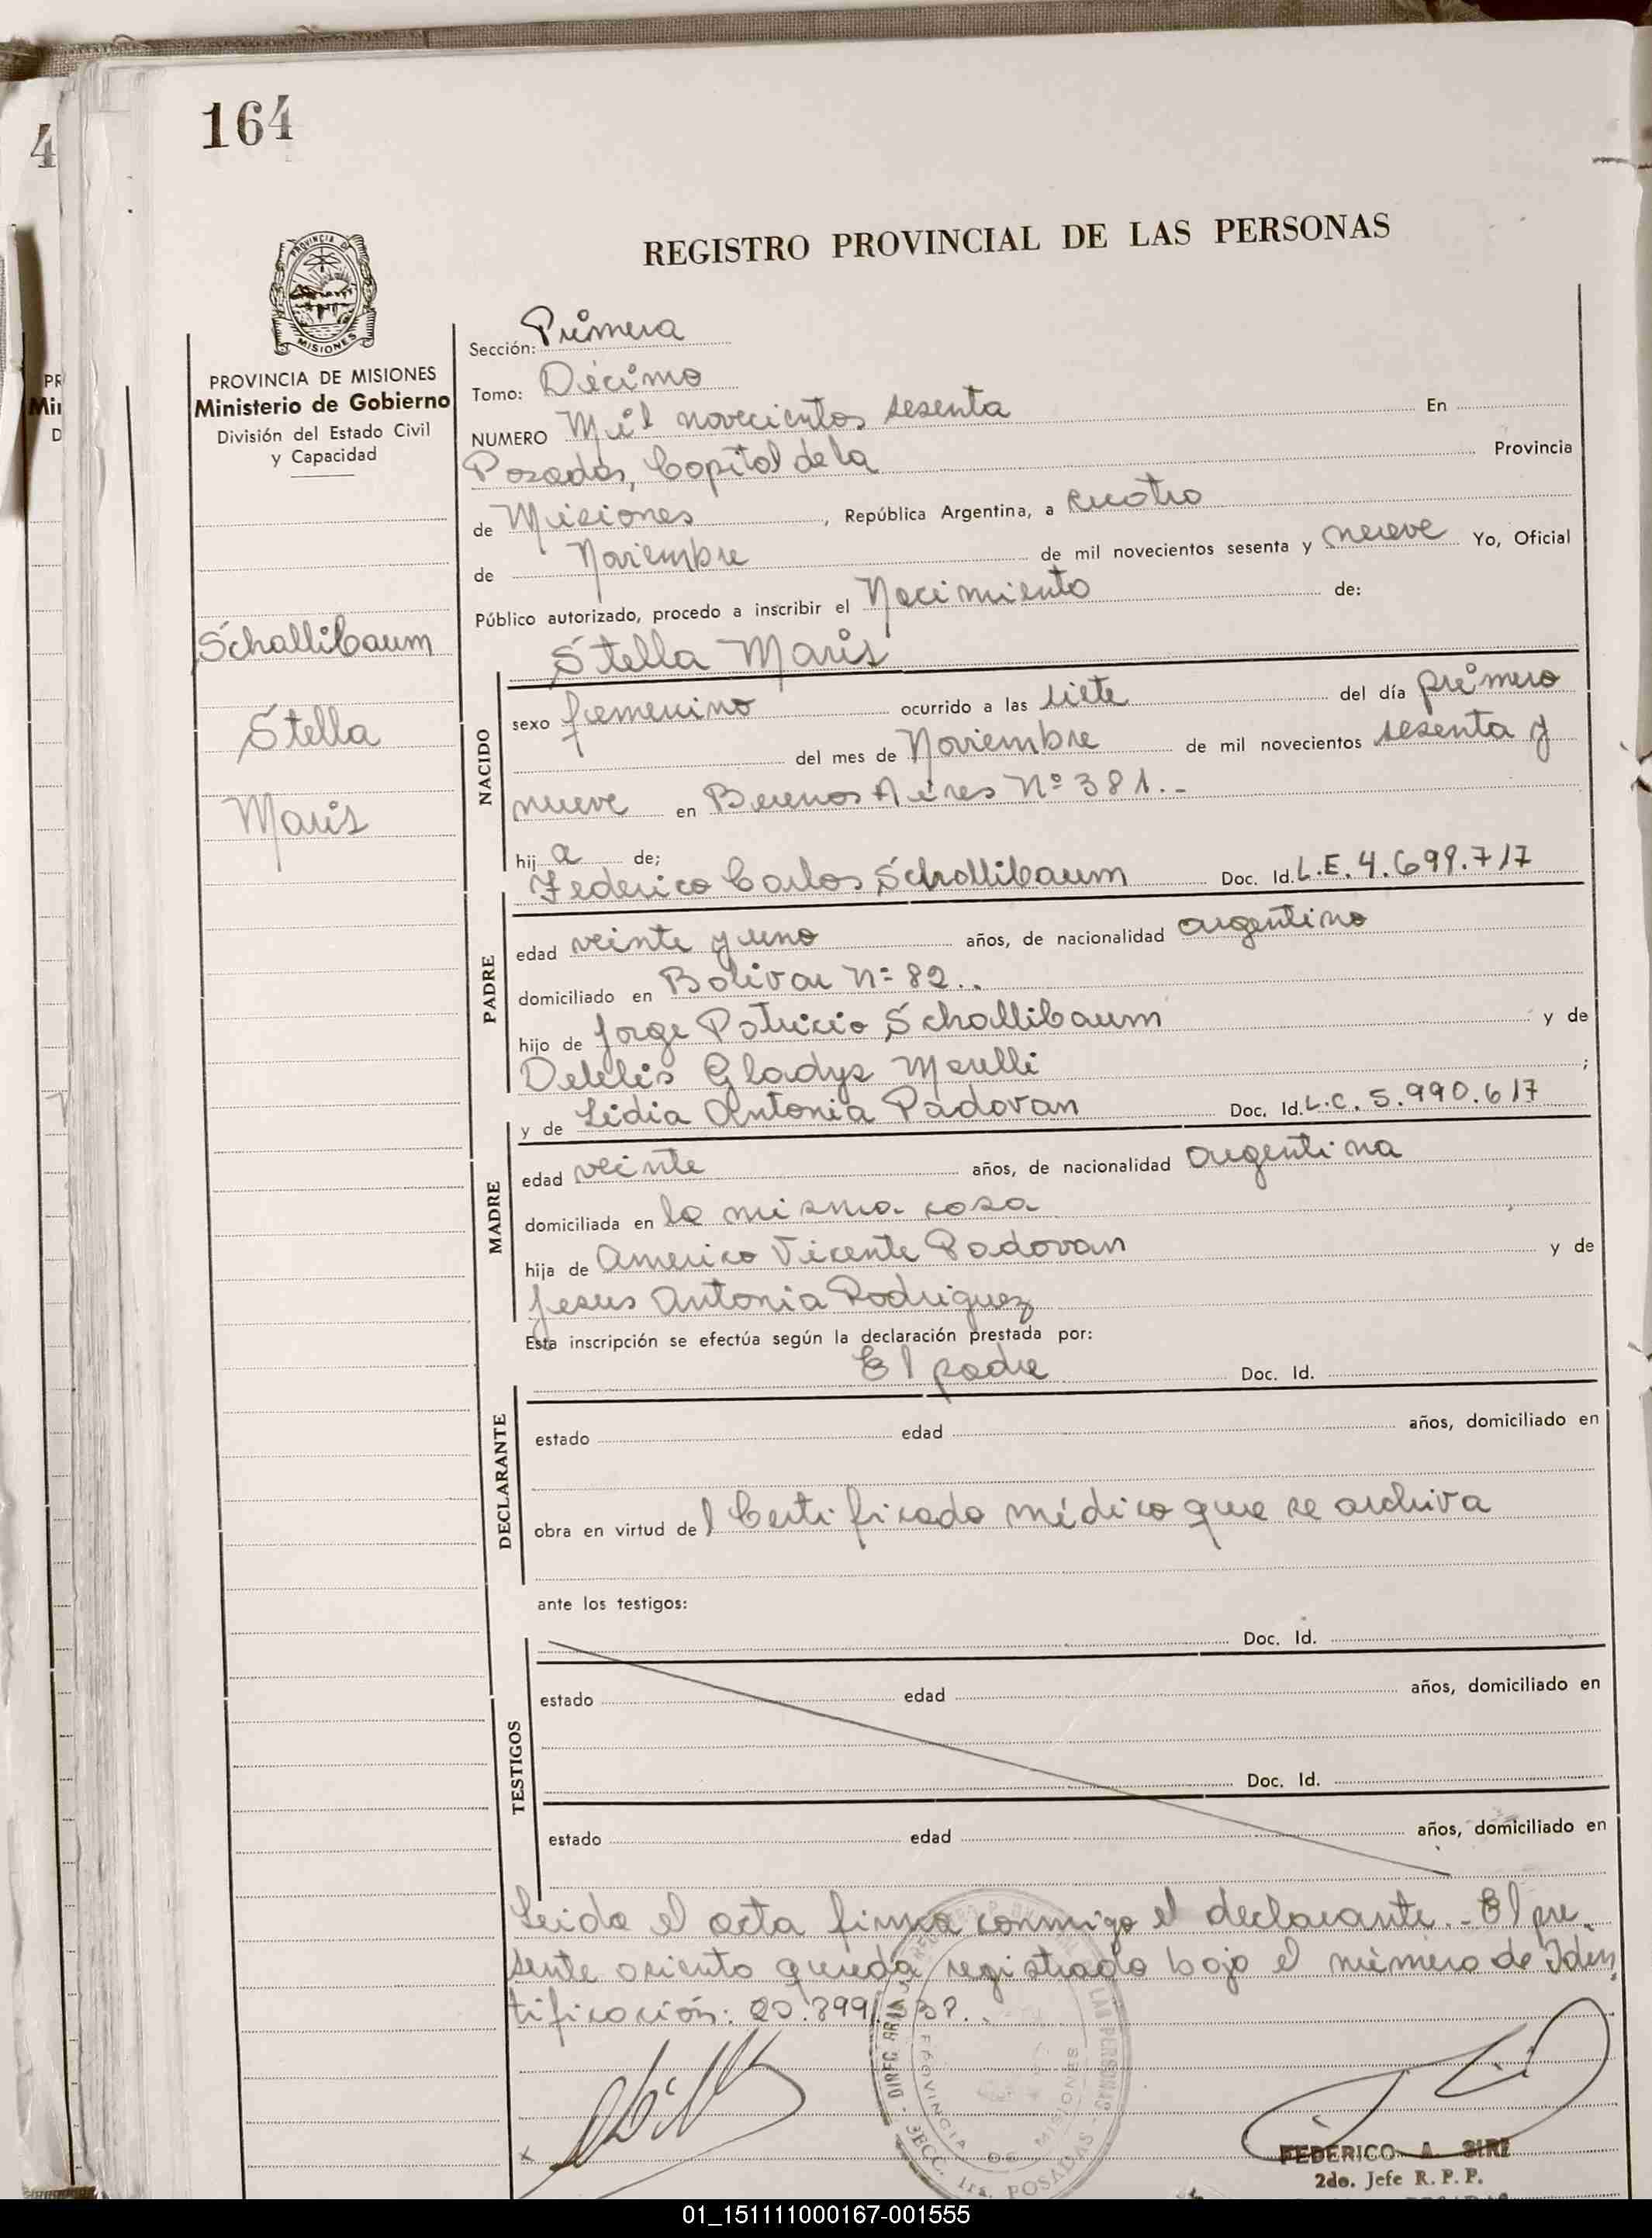 164
4
REGISTRO PROVINCIAL DE LAS PERSONAS
PROVINCIA DE MISIONES
Ministerio de Gobierno
División del Estado Civil
y Capacidad
Schallibaum
Stella
Maris
Sección: Primera
Tomo: Décimo
NUMERO Mil novecientos sesenta En
Posadas, Capital de la Provincia
de Misiones, República Argentina, a cuatro
de Noviembre de mil novecientos sesenta y nueve Yo, Oficial
Público autorizado, procedo a inscribir el Nacimiento de:
Stella Maris
NACIDO
sexo femenino ocurrido a las siete del día primero
del mes de Noviembre de mil novecientos sesenta y
nueve en Buenos Aires Nº 381.-
hij a de;
Federico Carlos Schallibaum Doc. Id. L.E. 4.699.717
PADRE
edad veinte y uno años, de nacionalidad argentino
domiciliado en Bolivar Nº 82..
hijo de Jorge Patricio Schallibaum y de
Gladys ;
y de Lidia Antonia Padovan Doc. Id. L.C. 5.990.617
MADRE
edad veinte años, de nacionalidad argentina
domiciliada en la misma casa
hija de Americo Vicente Padovan y de
Jesus Antonia Rodriguez
Esta inscripción se efectúa según la declaración prestada por:
El padre Doc. Id.
DECLARANTE
estado edad años, domiciliado en
obra en virtud de l Certificado médico que se archiva
ante los testigos:
Doc. Id.
TESTIGOS
estado edad años, domiciliado en
Doc. Id.
estado edad años, domiciliado en
Leida el acta firma conmigo el declarante.- El pre
sente asiento queda registrado bajo el número de Iden
tificación:
PROVINCIA DE MISIONES
SECC. 1ra. POSADAS
FEDERICO A. SIRI
2do. Jefe R. P. P.
01_151111000167-001555